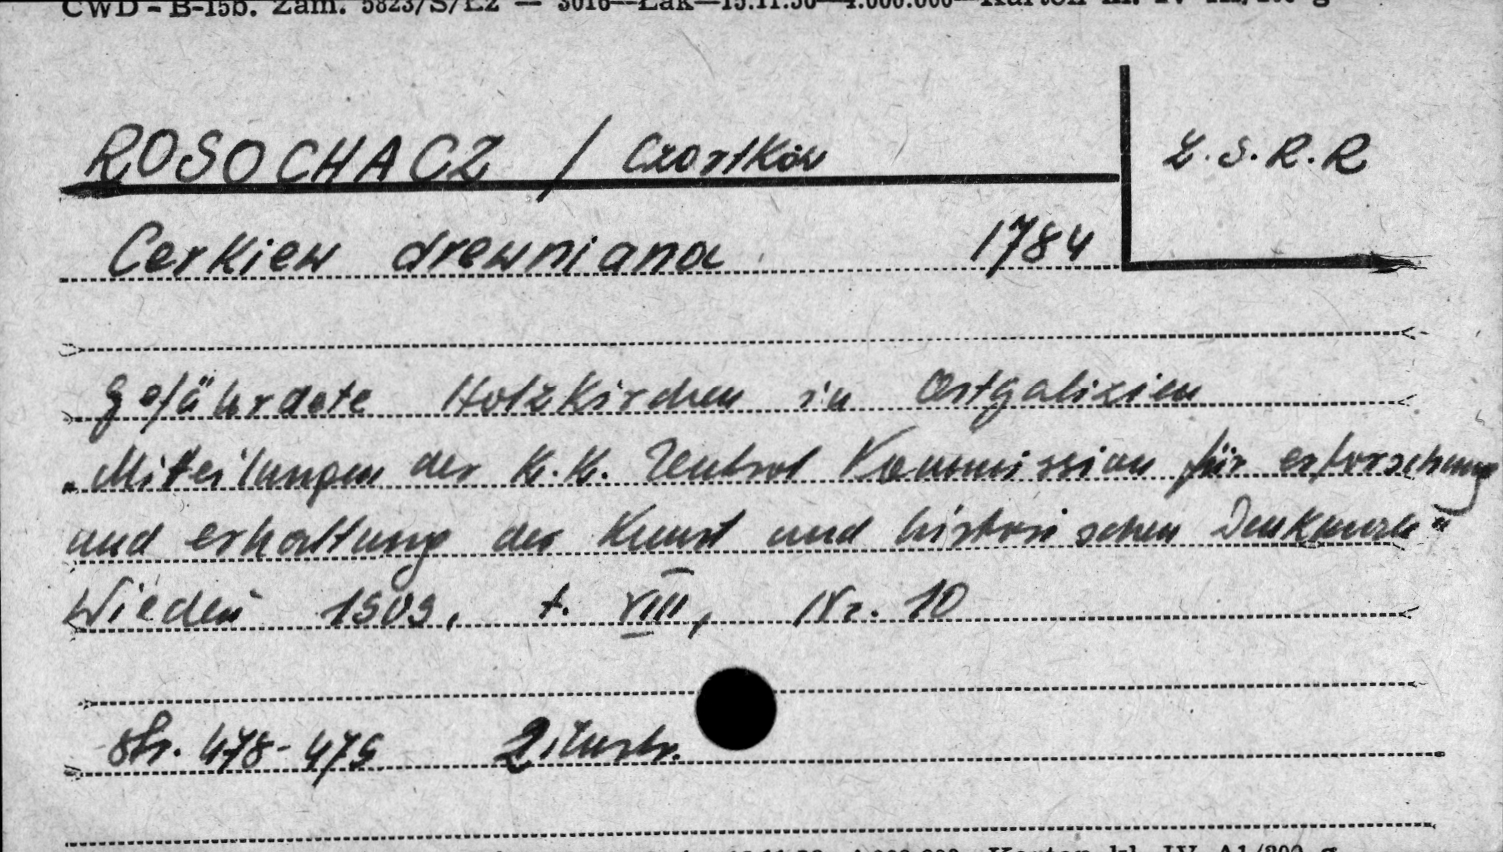 CWD - B-15b. Zam. 5823/S/Ez — 3016—Łąk—15.11.56—4.000.000—Karton
ROSOCHACZ / Czortków
Z.S.R.R
Cerkiew drewniana 1784
Gefährdete Holzkirchen in Ostgalizien
„Miteilungen der K.K. Zentral Kommission für erforschung
und erhaltung der Kunst und historischen Denkmale"
Wiedeń 1909, t. VIII, Nr. 10
str. 478-479 2 ilustr.